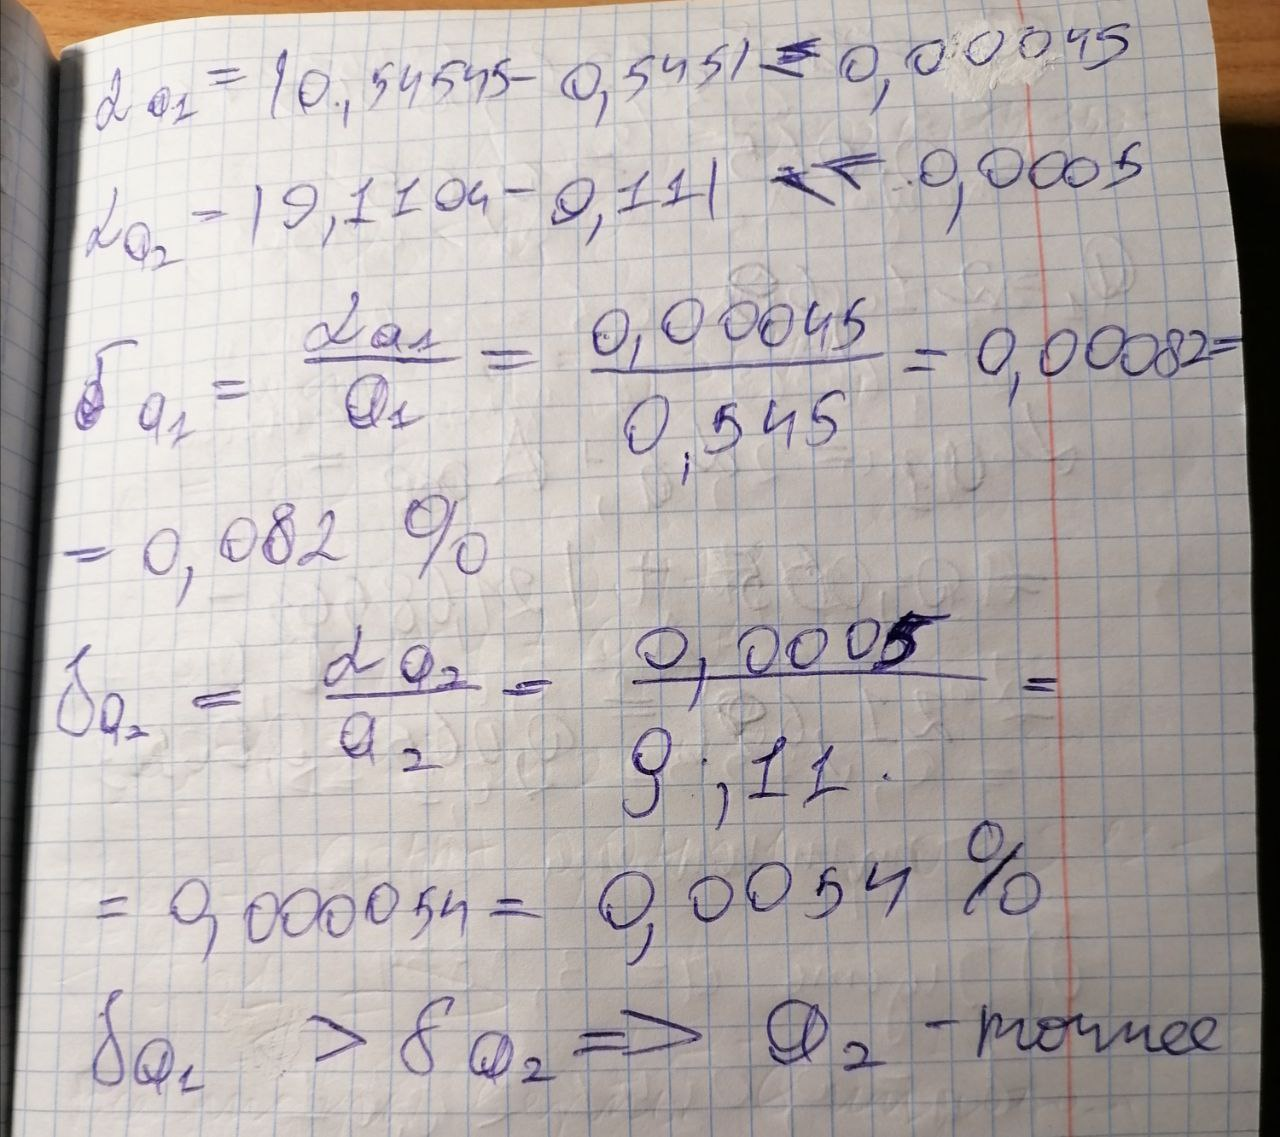 α a₁ = |0,54545 - 0,545| ≤ 0,00045
α a₂ = |9,1104 - 9,11| ≤ 0,0005
δ a₁ = α a₁ / a₁ = 0,00045 / 0,545 = 0,00082 =
= 0,082 %
δ a₂ = α a₂ / a₂ = 0,0005 / 9,11 =
= 0,000054 = 0,0054 %
δ a₁ > δ a₂ => a₂ - точнее